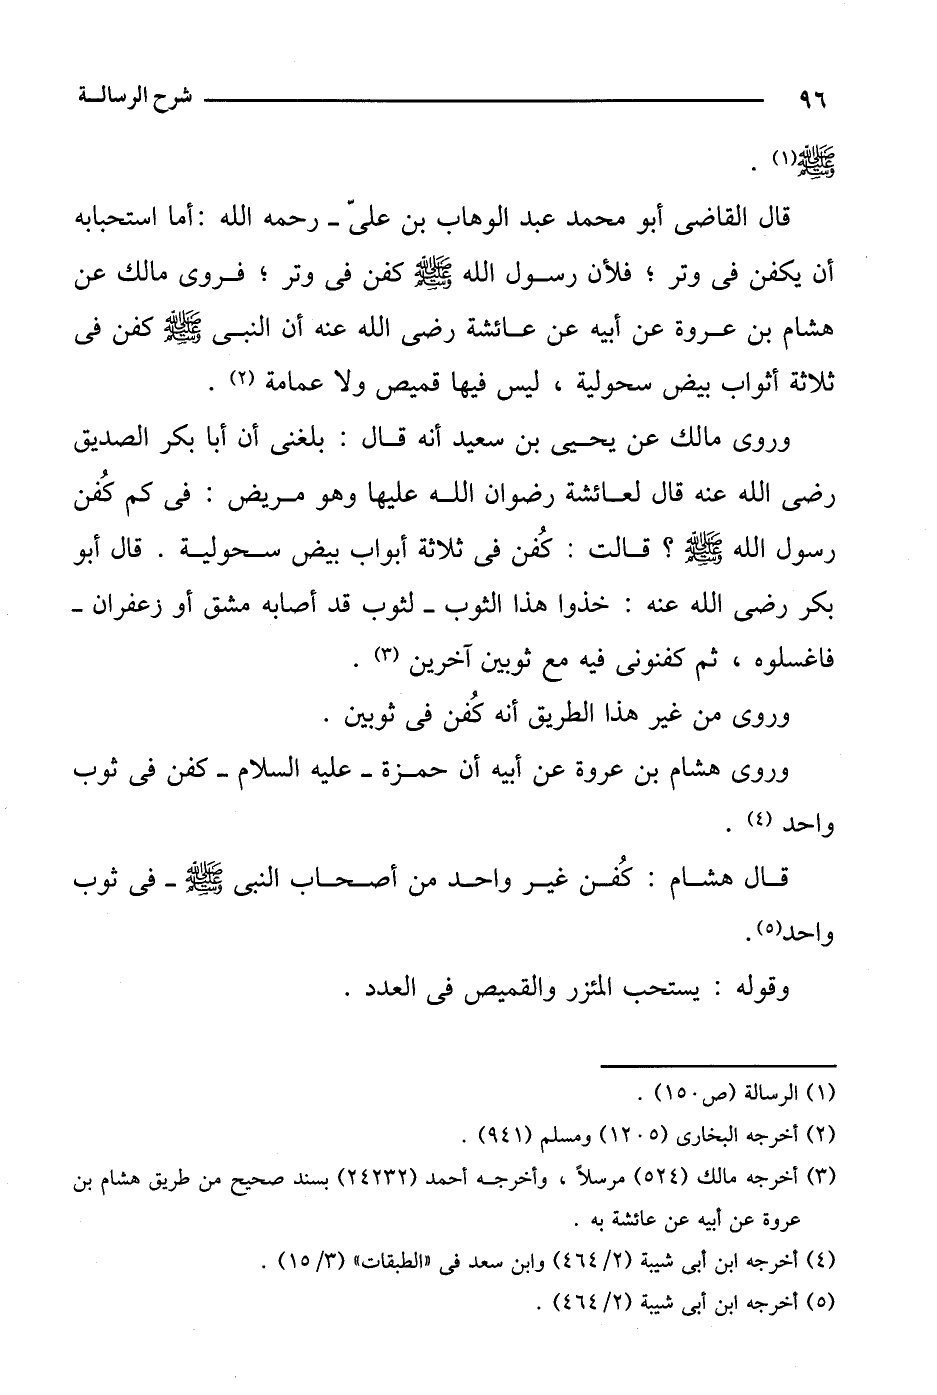 ٩٦ شرح الرسالة
ﷺ(١) .
قال القاضى أبو محمد عبد الوهاب بن علىّ ـ رحمه الله :أما استحبابه
أن يكفن فى وتر ؛ فلأن رسول الله ﷺ كفن فى وتر ؛ فروى مالك عن
هشام بن عروة عن أبيه عن عائشة رضى الله عنه أن النبى ﷺ كفن فى
ثلاثة أثواب بيض سحولية ، ليس فيها قميص ولا عمامة (٢) .
وروى مالك عن يحيى بن سعيد أنه قال : بلغنى أن أبا بكر الصديق
رضى الله عنه قال لعائشة رضوان الله عليها وهو مريض : فى كم كُفن
رسول الله ﷺ ؟ قالت : كُفن فى ثلاثة أبواب بيض سحولية . قال أبو
بكر رضى الله عنه : خذوا هذا الثوب ـ لثوب قد أصابه مشق أو زعفران ـ
فاغسلوه ، ثم كفنونى فيه مع ثوبين آخرين (٣) .
وروى من غير هذا الطريق أنه كُفن فى ثوبين .
وروى هشام بن عروة عن أبيه أن حمزة ـ عليه السلام ـ كفن فى ثوب
واحد (٤) .
قال هشام : كُفن غير واحد من أصحاب النبى ﷺ ـ فى ثوب
واحد(٥).
وقوله : يستحب المئزر والقميص فى العدد .
(١) الرسالة (ص١٥٠) .
(٢) أخرجه البخارى (١٢٠٥) ومسلم (٩٤١) .
(٣) أخرجه مالك (٥٢٤) مرسلاً ، وأخرجه أحمد (٢٤٢٣٢) بسند صحيح من طريق هشام بن
عروة عن أبيه عن عائشة به .
(٤) أخرجه ابن أبى شيبة (٢/ ٤٦٤) وابن سعد فى «الطبقات» (٣/ ١٥) .
(٥) أخرجه ابن أبى شيبة (٢/ ٤٦٤) .